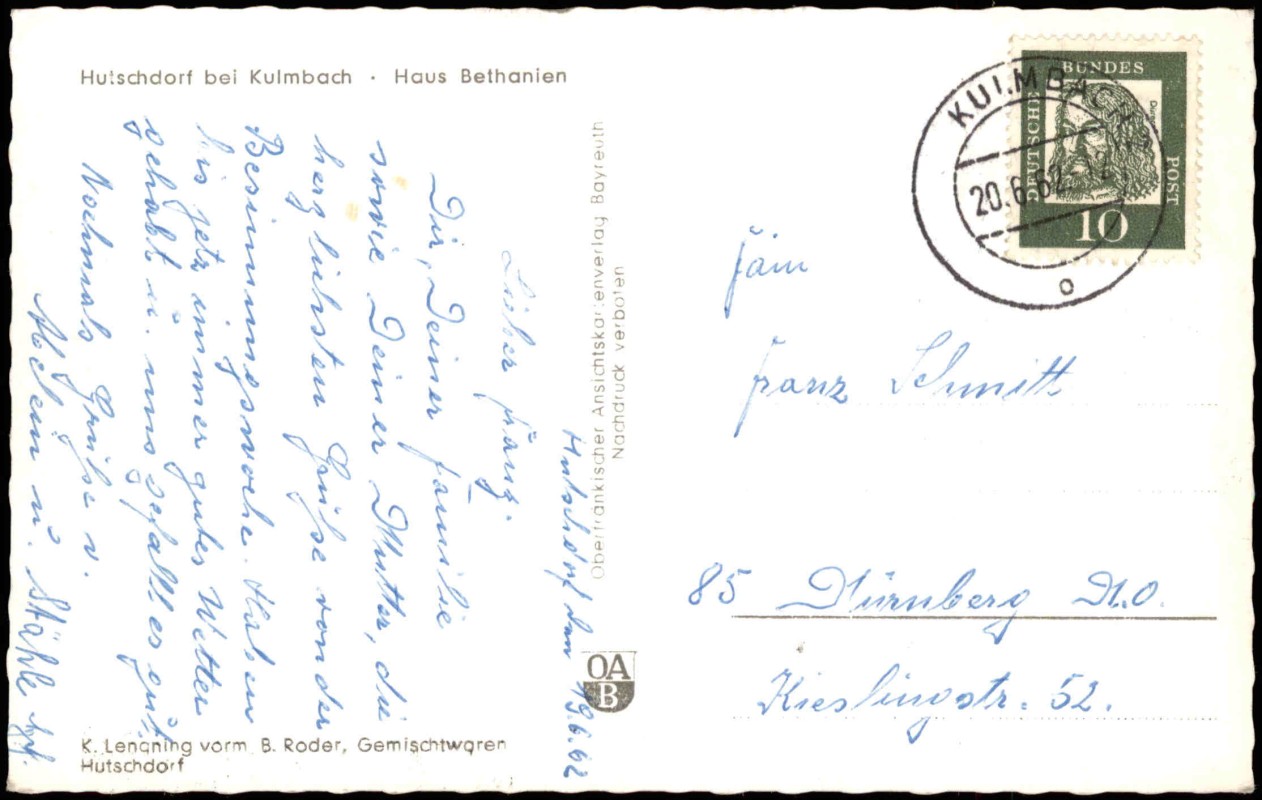 Hutschdorf bei Kulmbach · Haus Bethanien
Hutschdorf den 19.6.62
Lieber Franz.
Dir, Deiner Familie
sowie Deiner Mutter, die
herzlichsten Grüße von der
Besinnungswoche. Haben
bis jetz immer gutes Wetter
gehabt u. uns gefällt es gut
Nochmals Grüße v.
u. Stähle
Oberfränkischer Ansichtskartenverlag Bayreuth
Nachdruck verboten
OA
B
K. Lenqning vorm. B. Roder, Gemischtwaren
Hutschdorf
KULMBACH
20.6.62
DEUTSCHE
BUNDES
POST
10
Fam
Franz Schmitt
85 Nürnberg N.O.
Kieslingstr. 52.